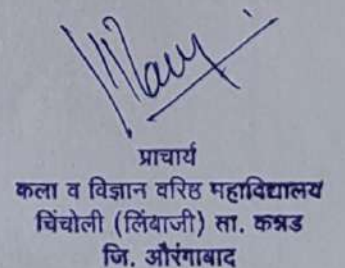 प्राचार्य
कला व विज्ञान वरिष्ठ महाविद्यालय
चिंचोली (लिंबाजी) ता. कन्नड
जि. औरंगाबाद